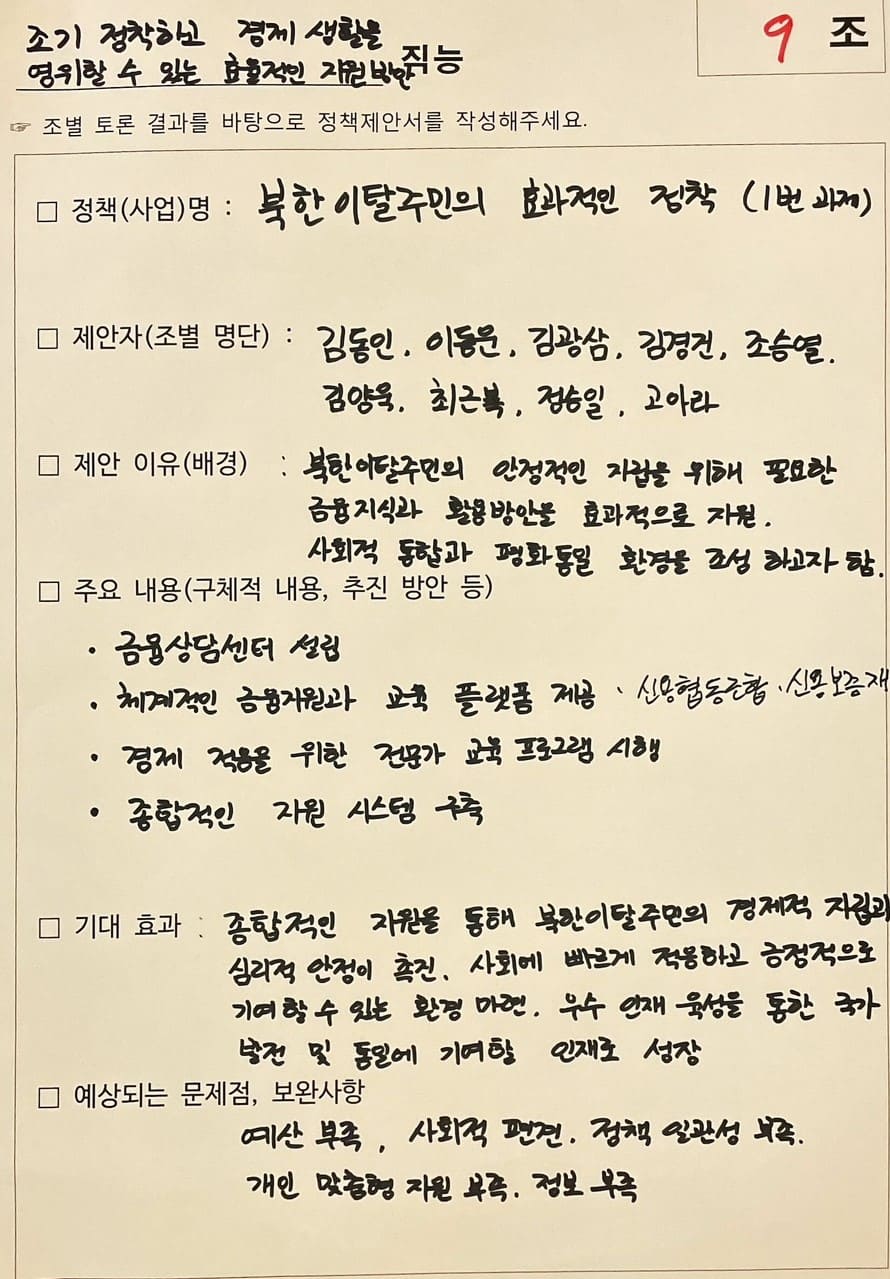 조기 정착하고 경제 생활을
영위할 수 있는 효율적인 지원방안 직능
9 조
☞ 조별 토론 결과를 바탕으로 정책제안서를 작성해주세요.
□ 정책(사업)명 : 북한이탈주민의 효과적인 정착 (1번 과제)
□ 제안자(조별 명단) : 김동인, 이동운, 김광삼, 김경건, 조승열.
김양욱, 최근복, 정승일, 고아라
□ 제안 이유(배경) : 북한이탈주민의 안정적인 자립을 위해 필요한
금융지식과 활용방안을 효과적으로 지원.
사회적 통합과 평화통일 환경을 조성 하고자 함.
□ 주요 내용(구체적 내용, 추진 방안 등)
• 금융상담센터 설립
• 체계적인 금융지원과 교육 플랫폼 제공 · 신용협동조합 · 신용보증재
• 경제 적응을 위한 전문가 교육 프로그램 시행
• 종합적인 지원 시스템 구축
□ 기대 효과 : 종합적인 지원을 통해 북한이탈주민의 경제적 자립과
심리적 안정이 촉진. 사회에 빠르게 적응하고 긍정적으로
기여할 수 있는 환경 마련. 우수 인재 육성을 통한 국가
발전 및 통일에 기여할 인재로 성장
□ 예상되는 문제점, 보완사항
예산 부족, 사회적 편견. 정책 일관성 부족.
개인 맞춤형 지원 부족. 정보 부족